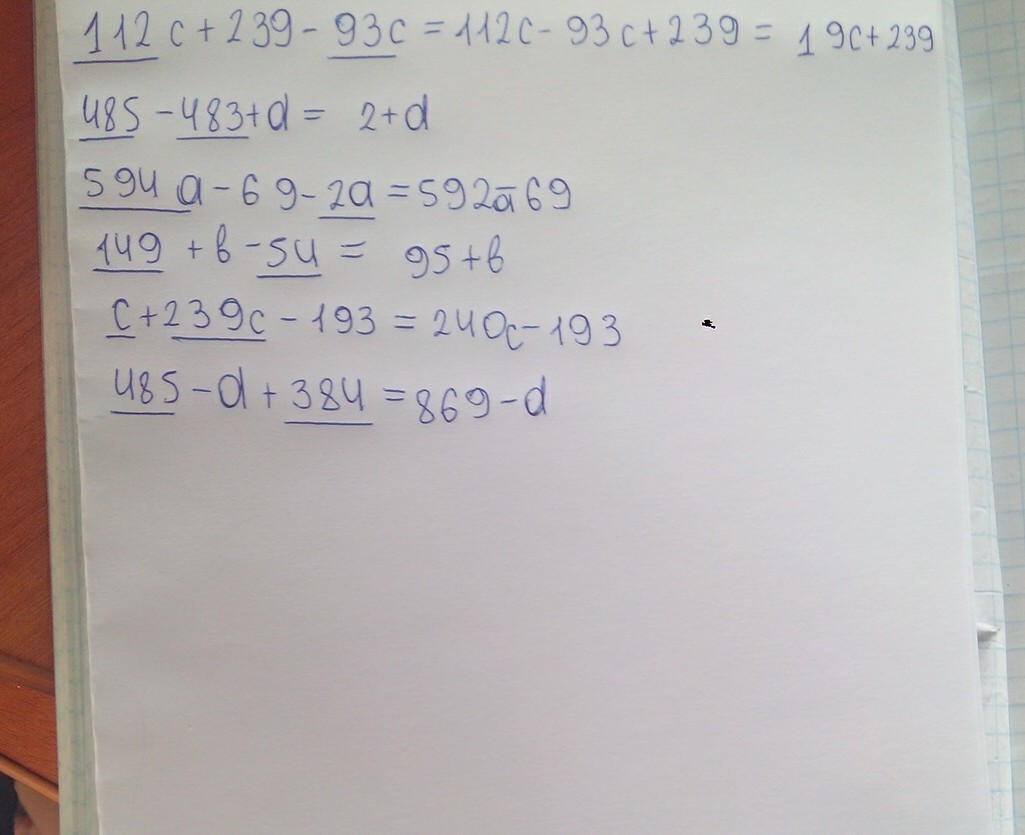 112c + 239 - 93c = 112c - 93c + 239 = 19c + 239
485 - 483 + d = 2 + d
594a - 69 - 2a = 592a - 69
149 + b - 54 = 95 + b
c + 239c - 193 = 240c - 193
485 - d + 384 = 869 - d